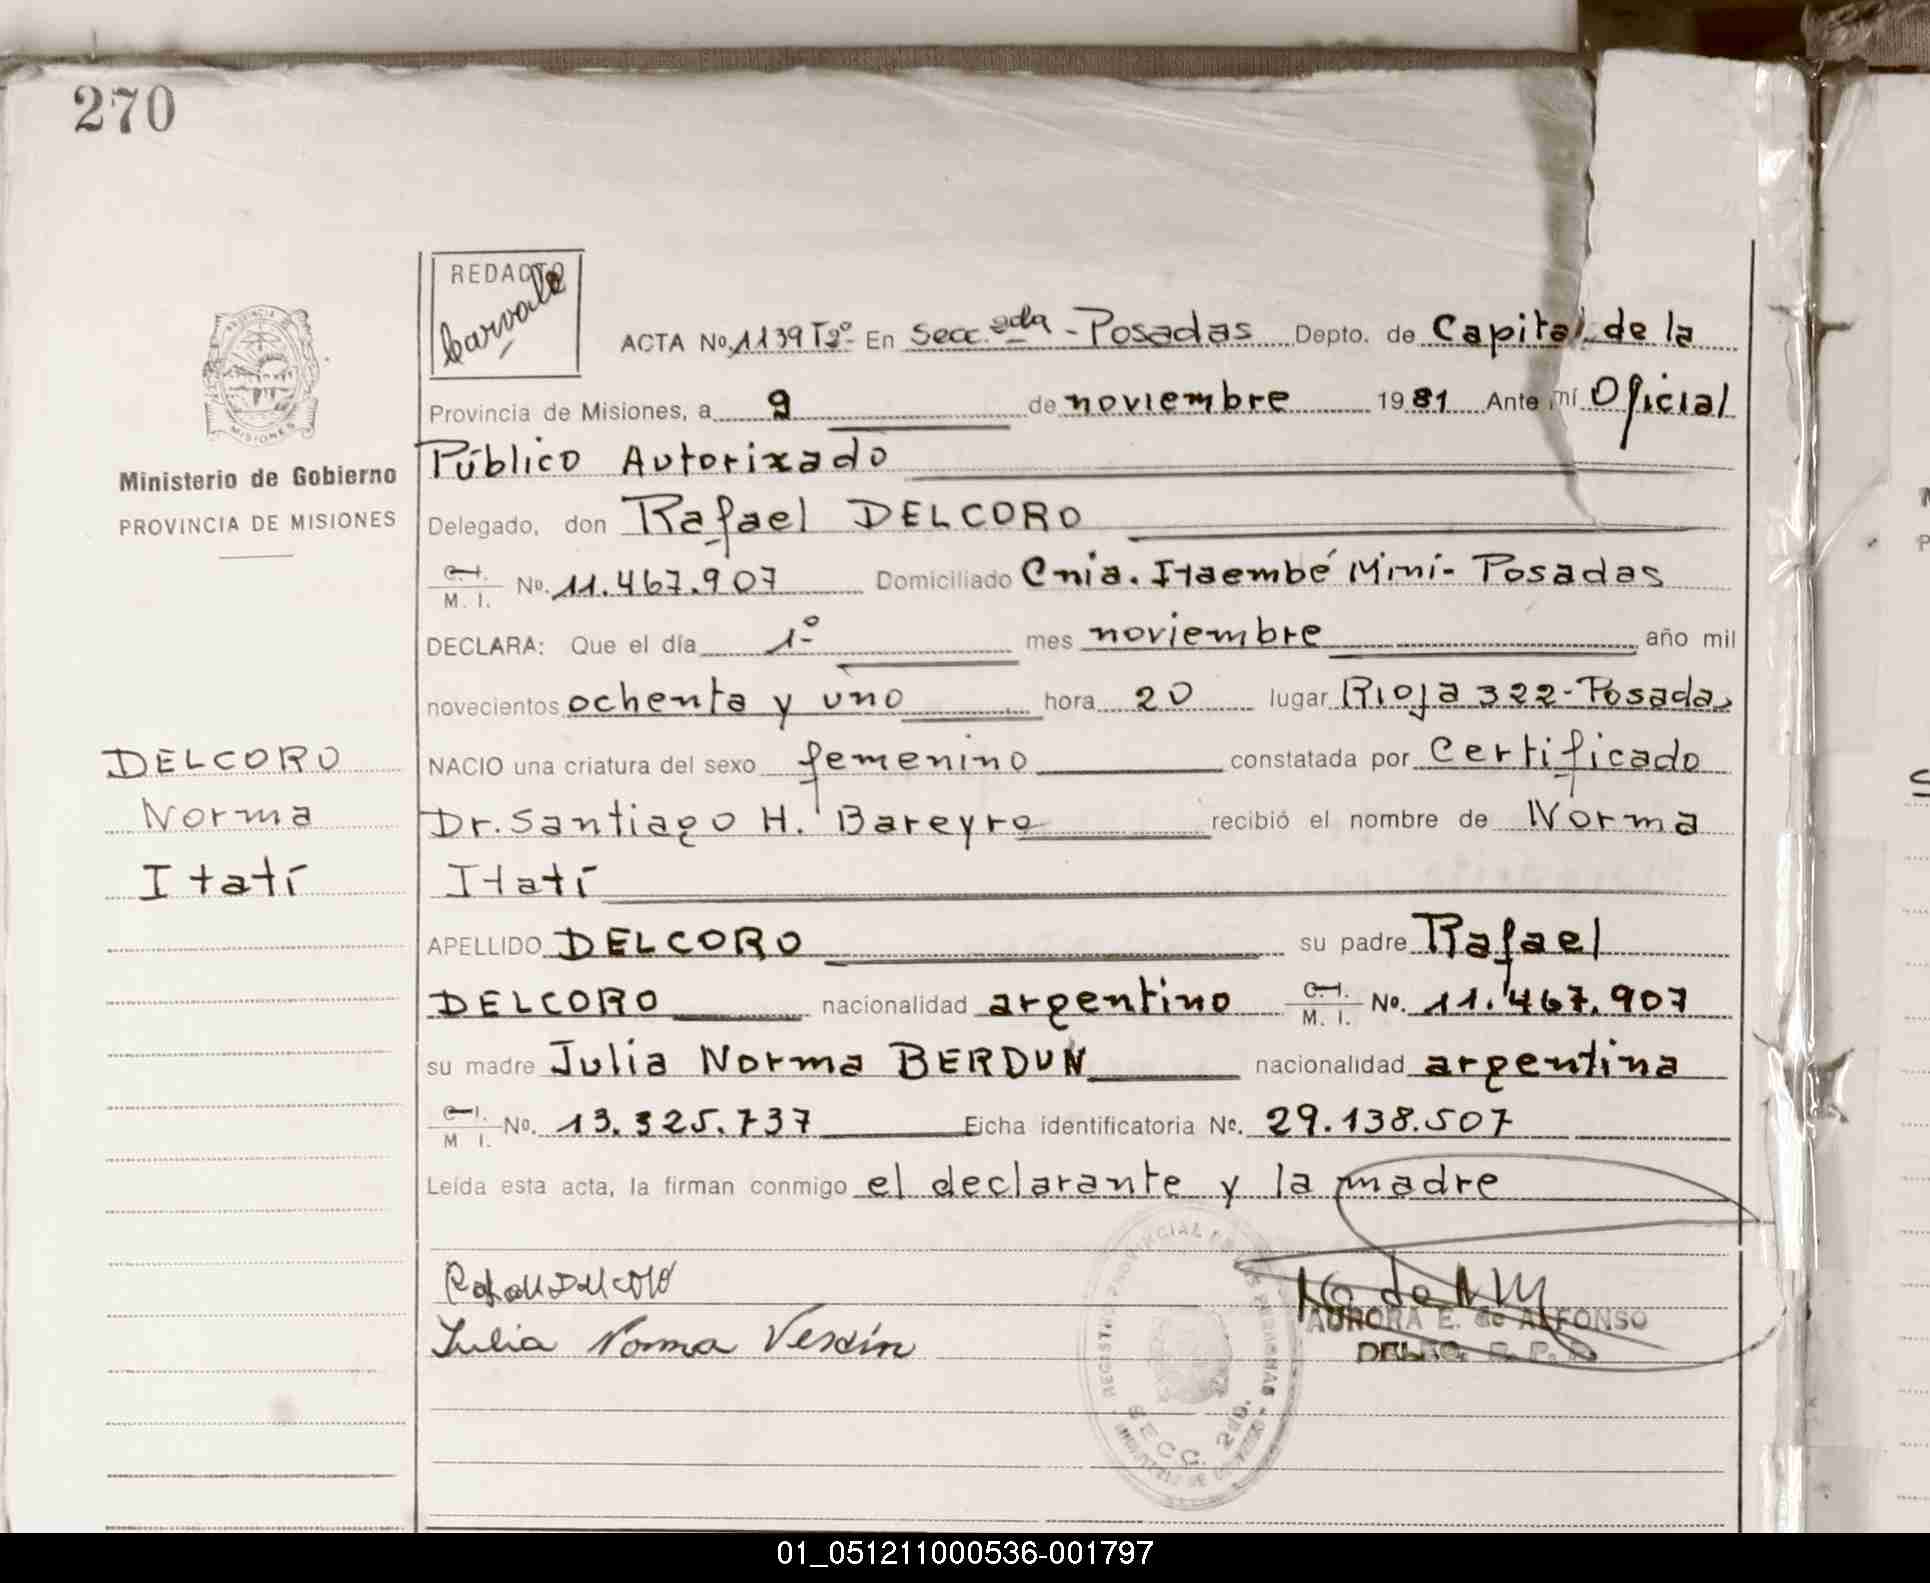 270
REDACTO
ACTA No. 1139 Tº 2º En Secc. 2da - Posadas Depto. de Capital de la
Provincia de Misiones, a 9 de noviembre 1981 Ante mí Oficial
Público Autorizado
Ministerio de Gobierno
PROVINCIA DE MISIONES
Delegado, don Rafael DELCORO
C.I. M. I. No. 11.467.907 Domiciliado Cnia. Itaembé Miní - Posadas
DECLARA: Que el día 1º mes noviembre año mil
novecientos ochenta y uno hora 20 lugar Rioja 322 - Posadas
DELCORO
Norma
Itatí
NACIO una criatura del sexo femenino constatada por Certificado
Dr. Santiago H. Bareyro recibió el nombre de Norma
Itatí
APELLIDO DELCORO su padre Rafael
DELCORO nacionalidad argentino C.I. M. I. No. 11.467.907
su madre Julia Norma BERDUN nacionalidad argentina
C.I. M I. No. 13.325.737 Ficha identificatoria No. 29.138.507
Leída esta acta, la firman conmigo el declarante y la madre
Rafael Delcoro
Julia Norma Verdún
AURORA E. de ALFONSO
SECC. 2da.
01_051211000536-001797